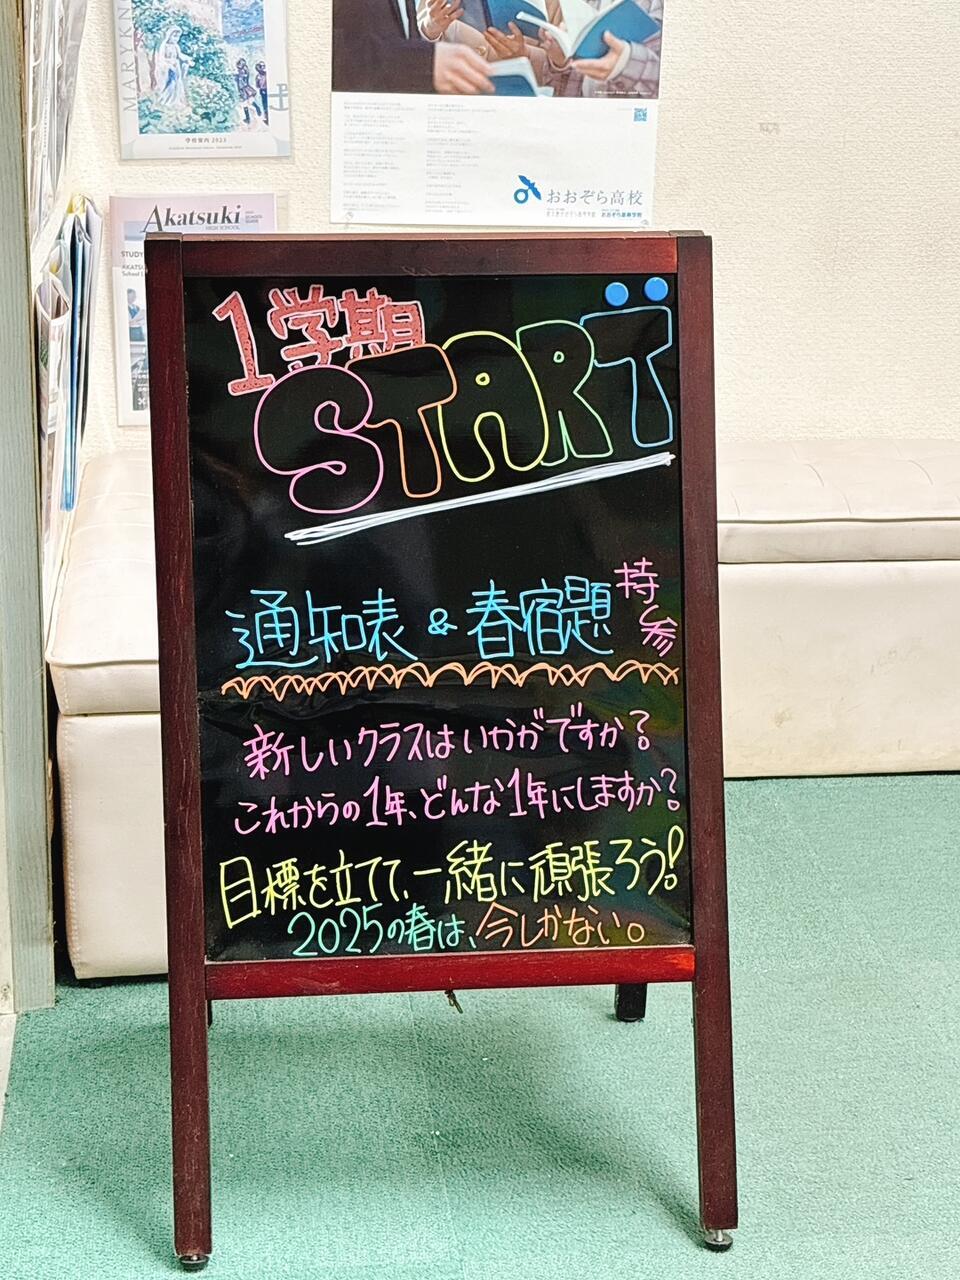 MARYKN
学校案内 2023
おおぞら高校
Akatsuki
HIGH SCHOOL
SCHOOL GUIDE
STUDY
AKATSU
School L
1学期
START
通知表 & 春宿題 持参
新しいクラスはいかがですか?
これからの1年、どんな1年にしますか?
目標を立てて、一緒に頑張ろう!
2025の春は、今しかない。